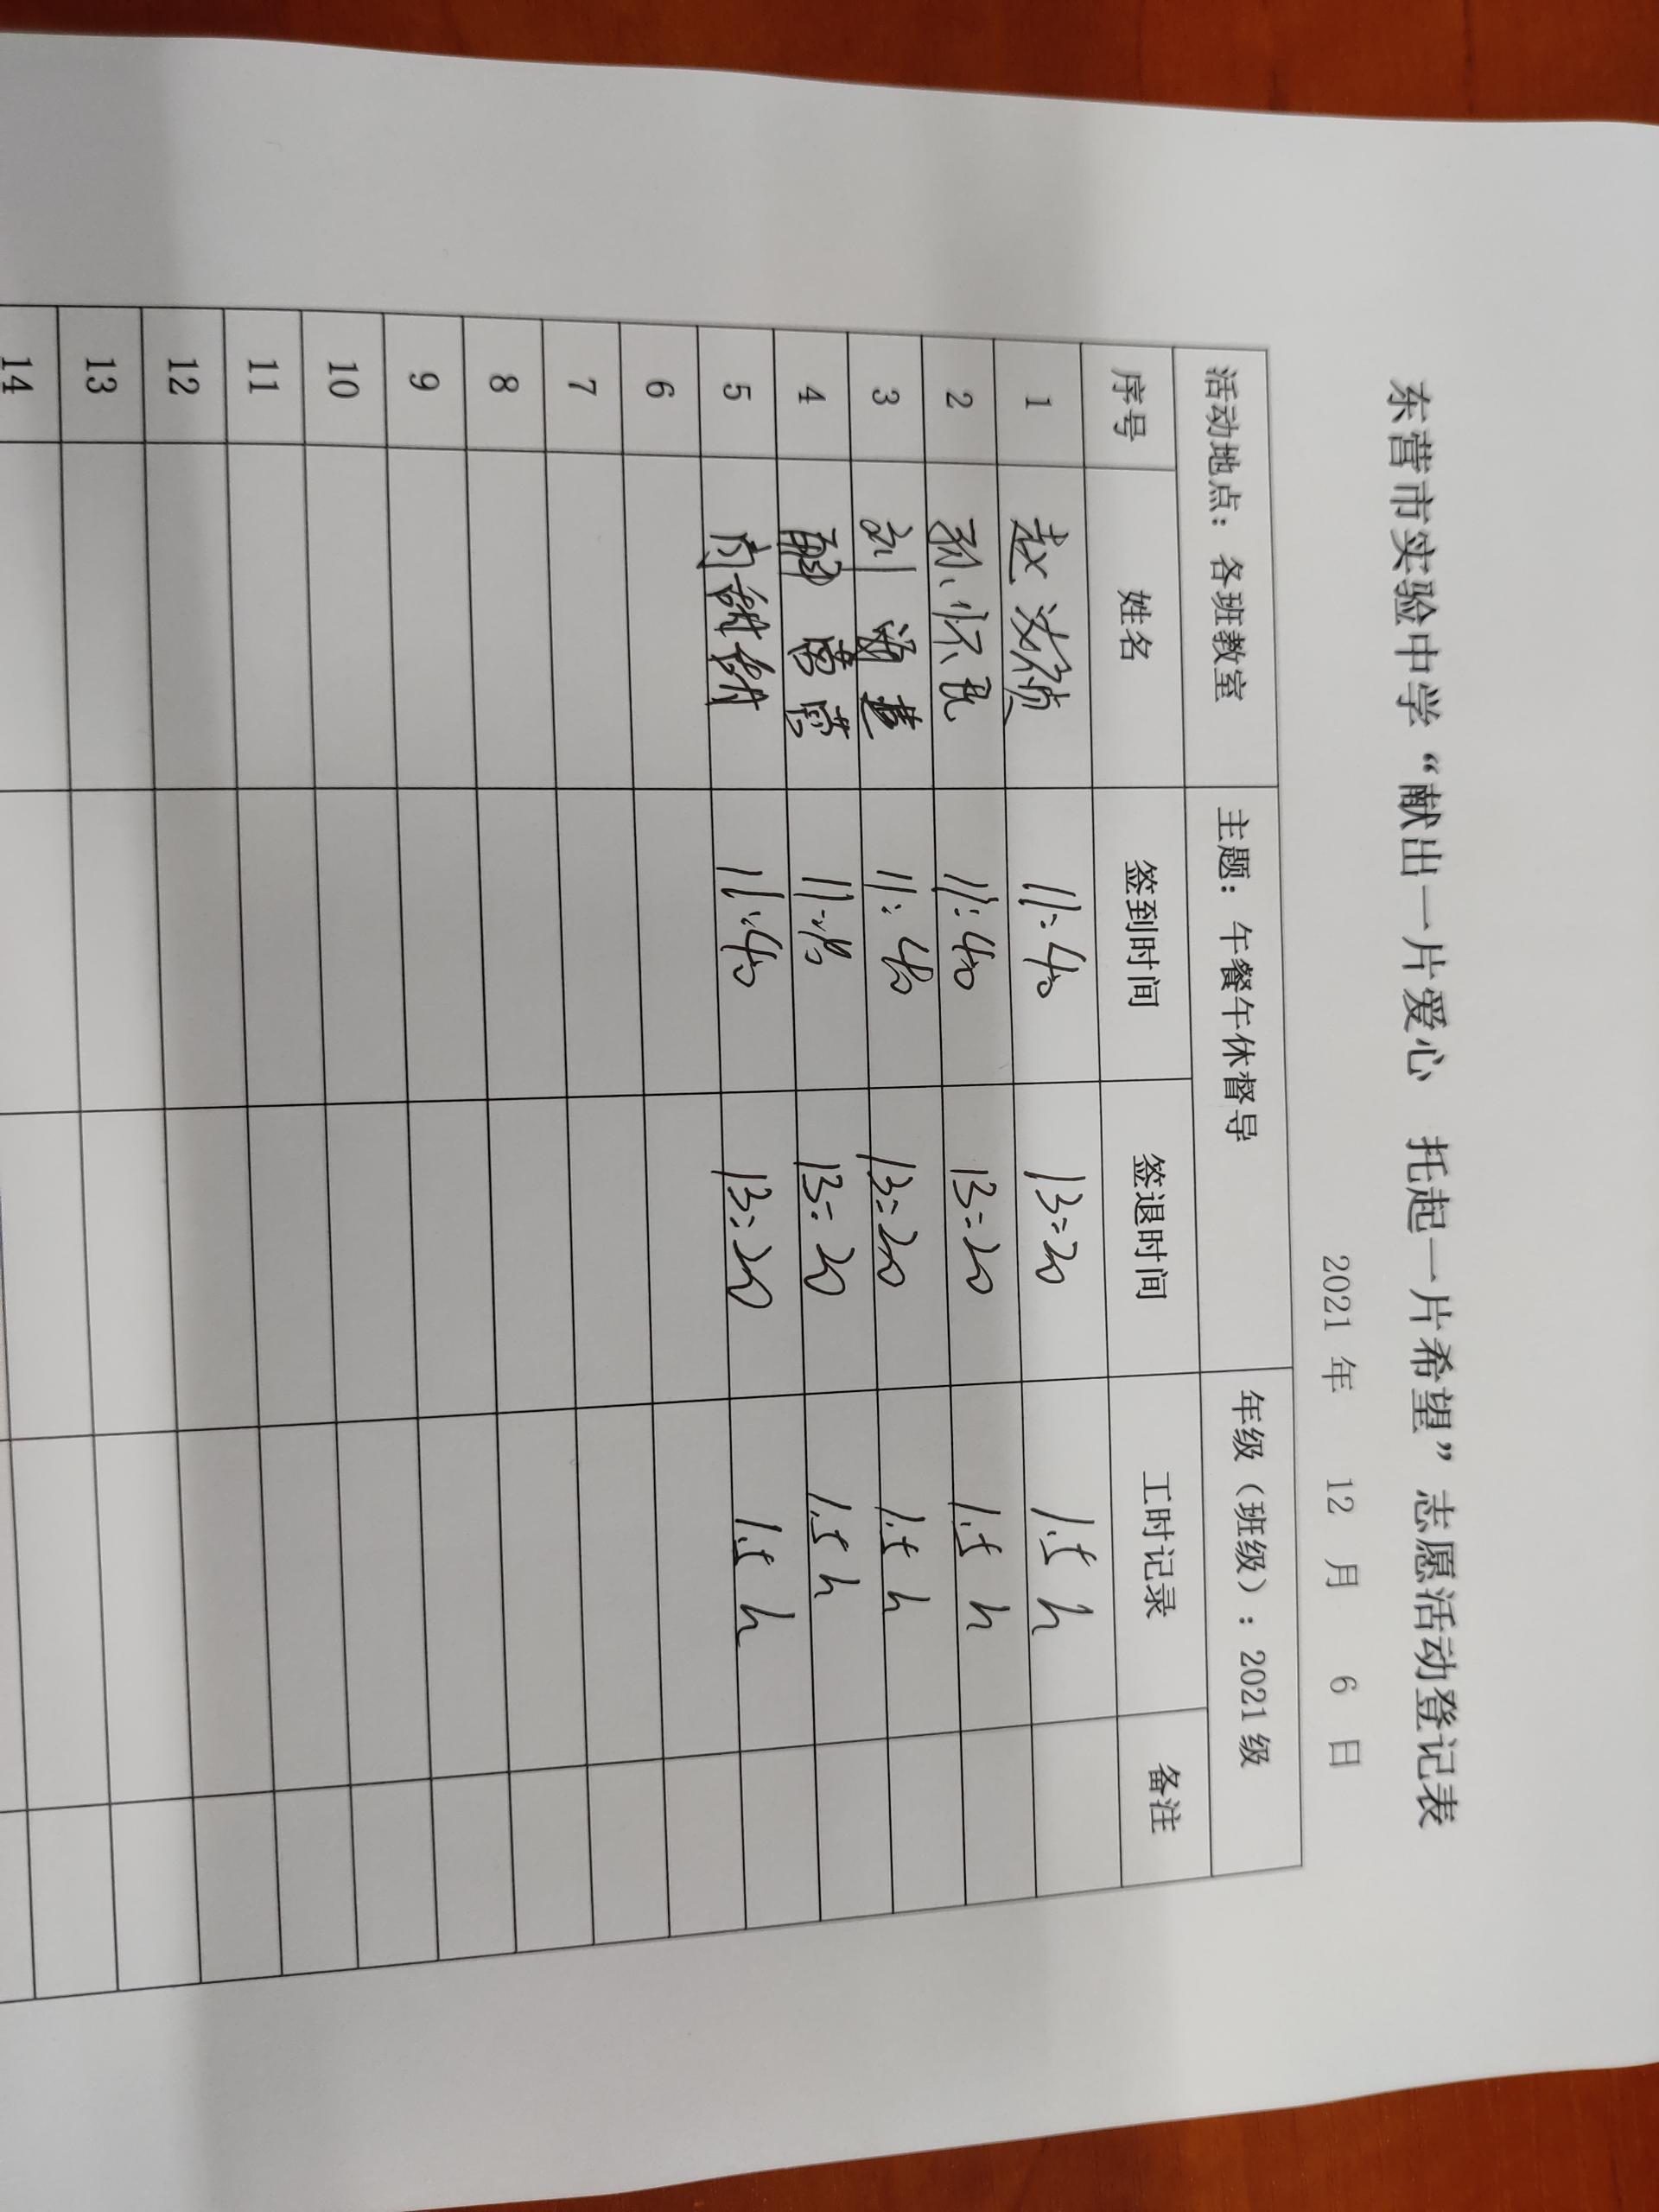 东营市实验中学“献出一片爱心 托起一片希望”志愿活动登记表
2021 年 12 月 6 日
活动地点：各班教室 主题：午餐午休督导 年级（班级）：2021级
序号 姓名 签到时间 签退时间 工时记录 备注
1 赵 11:40 13:20 1.5 h
2 孙怀民 11:40 13:20 1.5 h
3 刘 11:40 13:20 1.5 h
4 11:40 13:20 1.5 h
5 11:40 13:20 1.5 h
6
7
8
9
10
11
12
13
14